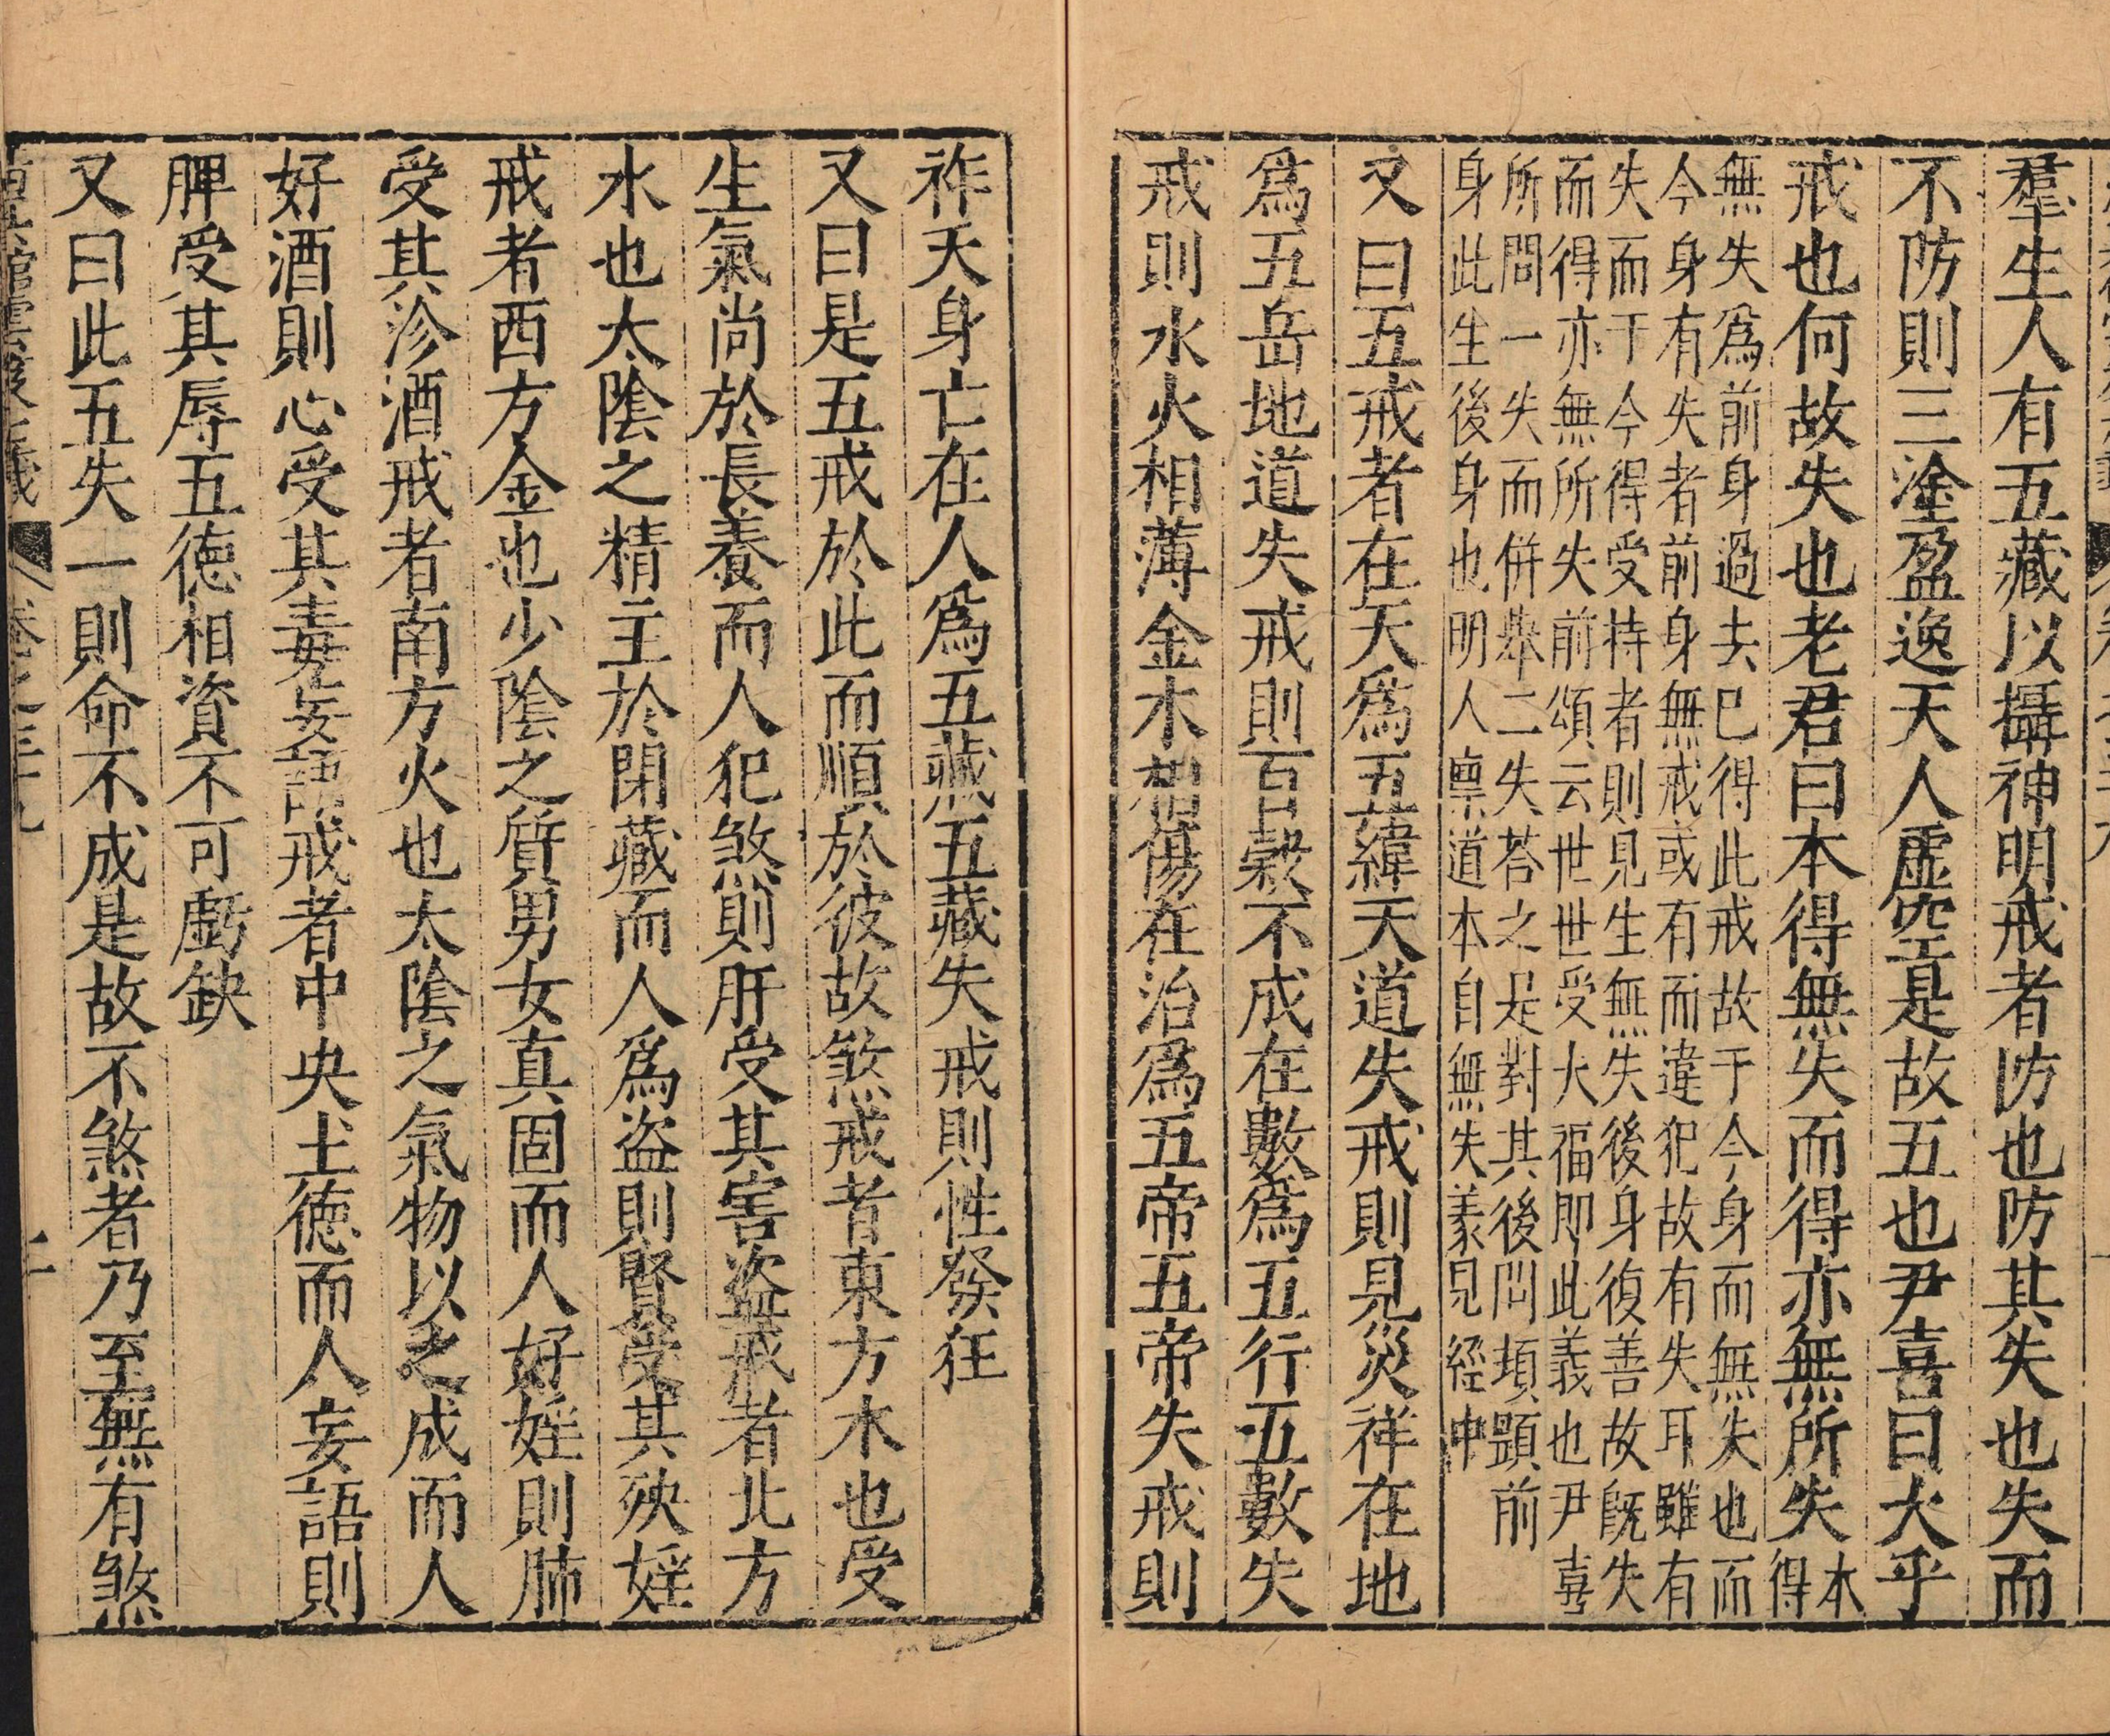 羣生人有五藏以攝神明戒者防也防其失也失而
不防則三塗盈逸天人虛空是故五也尹喜曰大乎
戒也何故失也老君曰本得無失而得亦無所失本
得
無失爲前身過去巳得此戒故于今身而無失也而
今身有失者前身無戒或有而違犯故有失耳雖有
失而于今得受持者則見生無失後身復善故旣失
而得亦無所失前頌云世世受大福即此義也尹喜
所問一失而併舉二失荅之是對其後問項顕前
身此生後身也明人稟道本自無失義見經中
又曰五戒者在天爲五緯天道失戒則見災祥在地
爲五岳地道失戒則百穀不成在數爲五行五數失
戒則水火相薄金木相傷在治爲五帝五帝失戒則
祚夭身亡在人爲五藏五藏失戒則性發狂
又曰是五戒於此而順於彼故煞戒者東方木也受
生氣尚於長養而人犯煞則肝受其害盜戒者北方
水也太陰之精主於閉藏而人爲盜則腎受其殃婬
戒者西方金也少陰之質男女真固而人好婬則肺
受其沴酒戒者南方火也太陰之氣物以之成而人
好酒則心受其毒妄語戒者中央土德而人妄語則
脾受其辱五德相資不可虧缺
又曰此五失一則命不成是故不煞者乃至無有煞